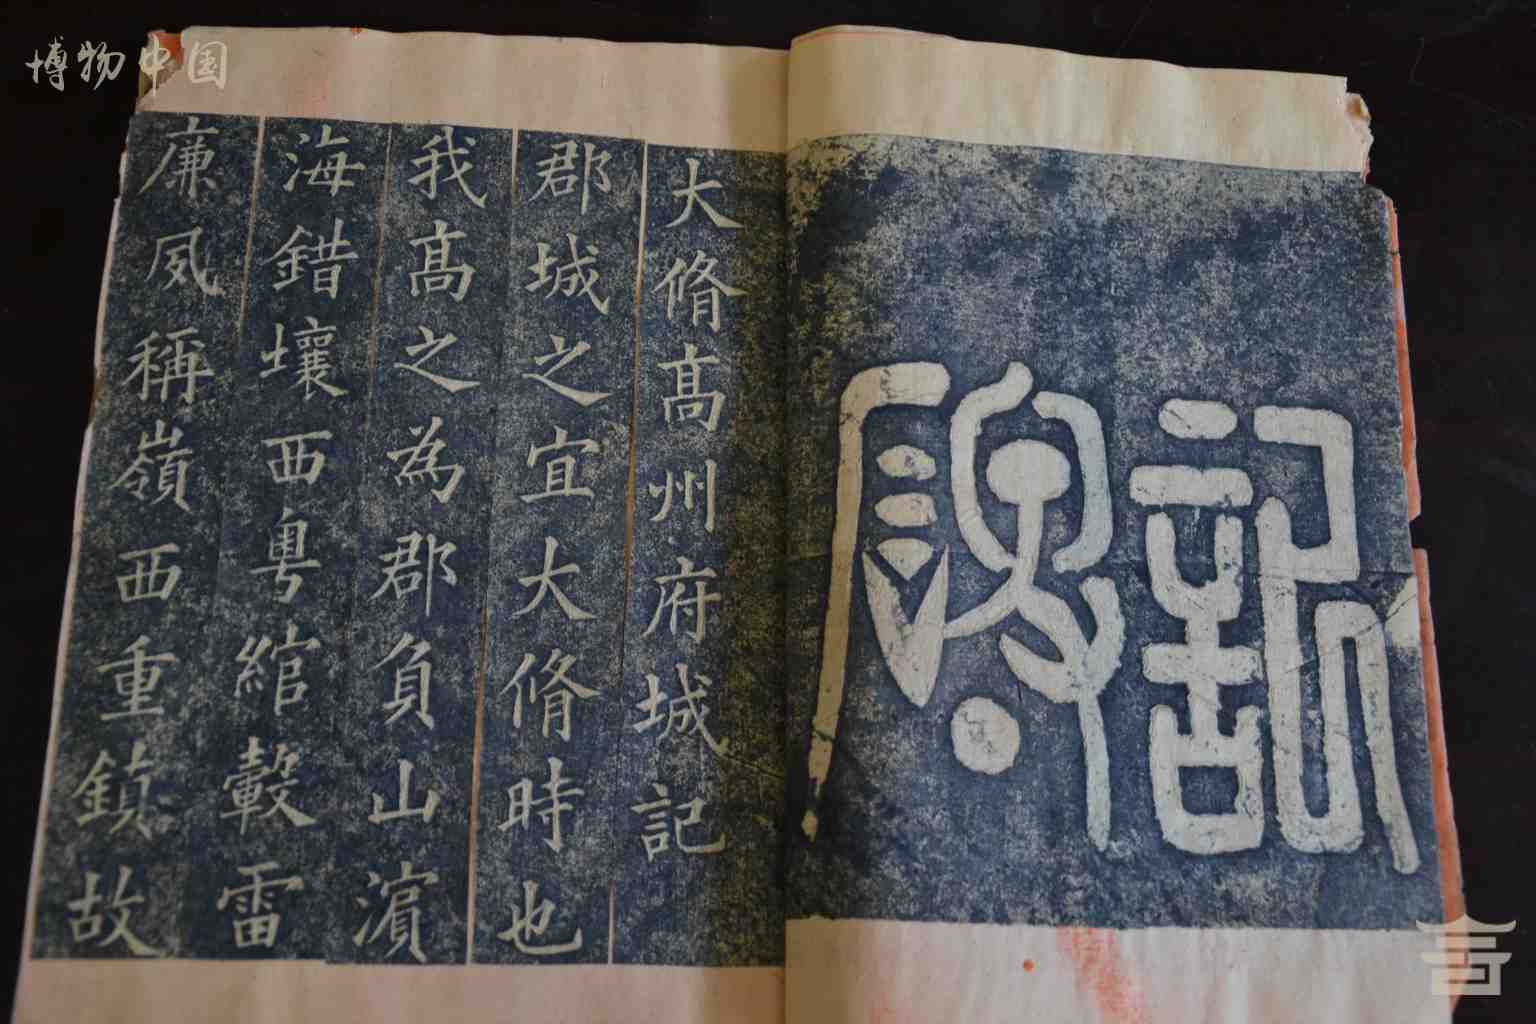 博物中国
記
大脩髙州府城記
郡城之宜大脩時也
我髙之為郡負山濵
海錯壤西粤綰轂雷
廉夙稱嶺西重鎮故